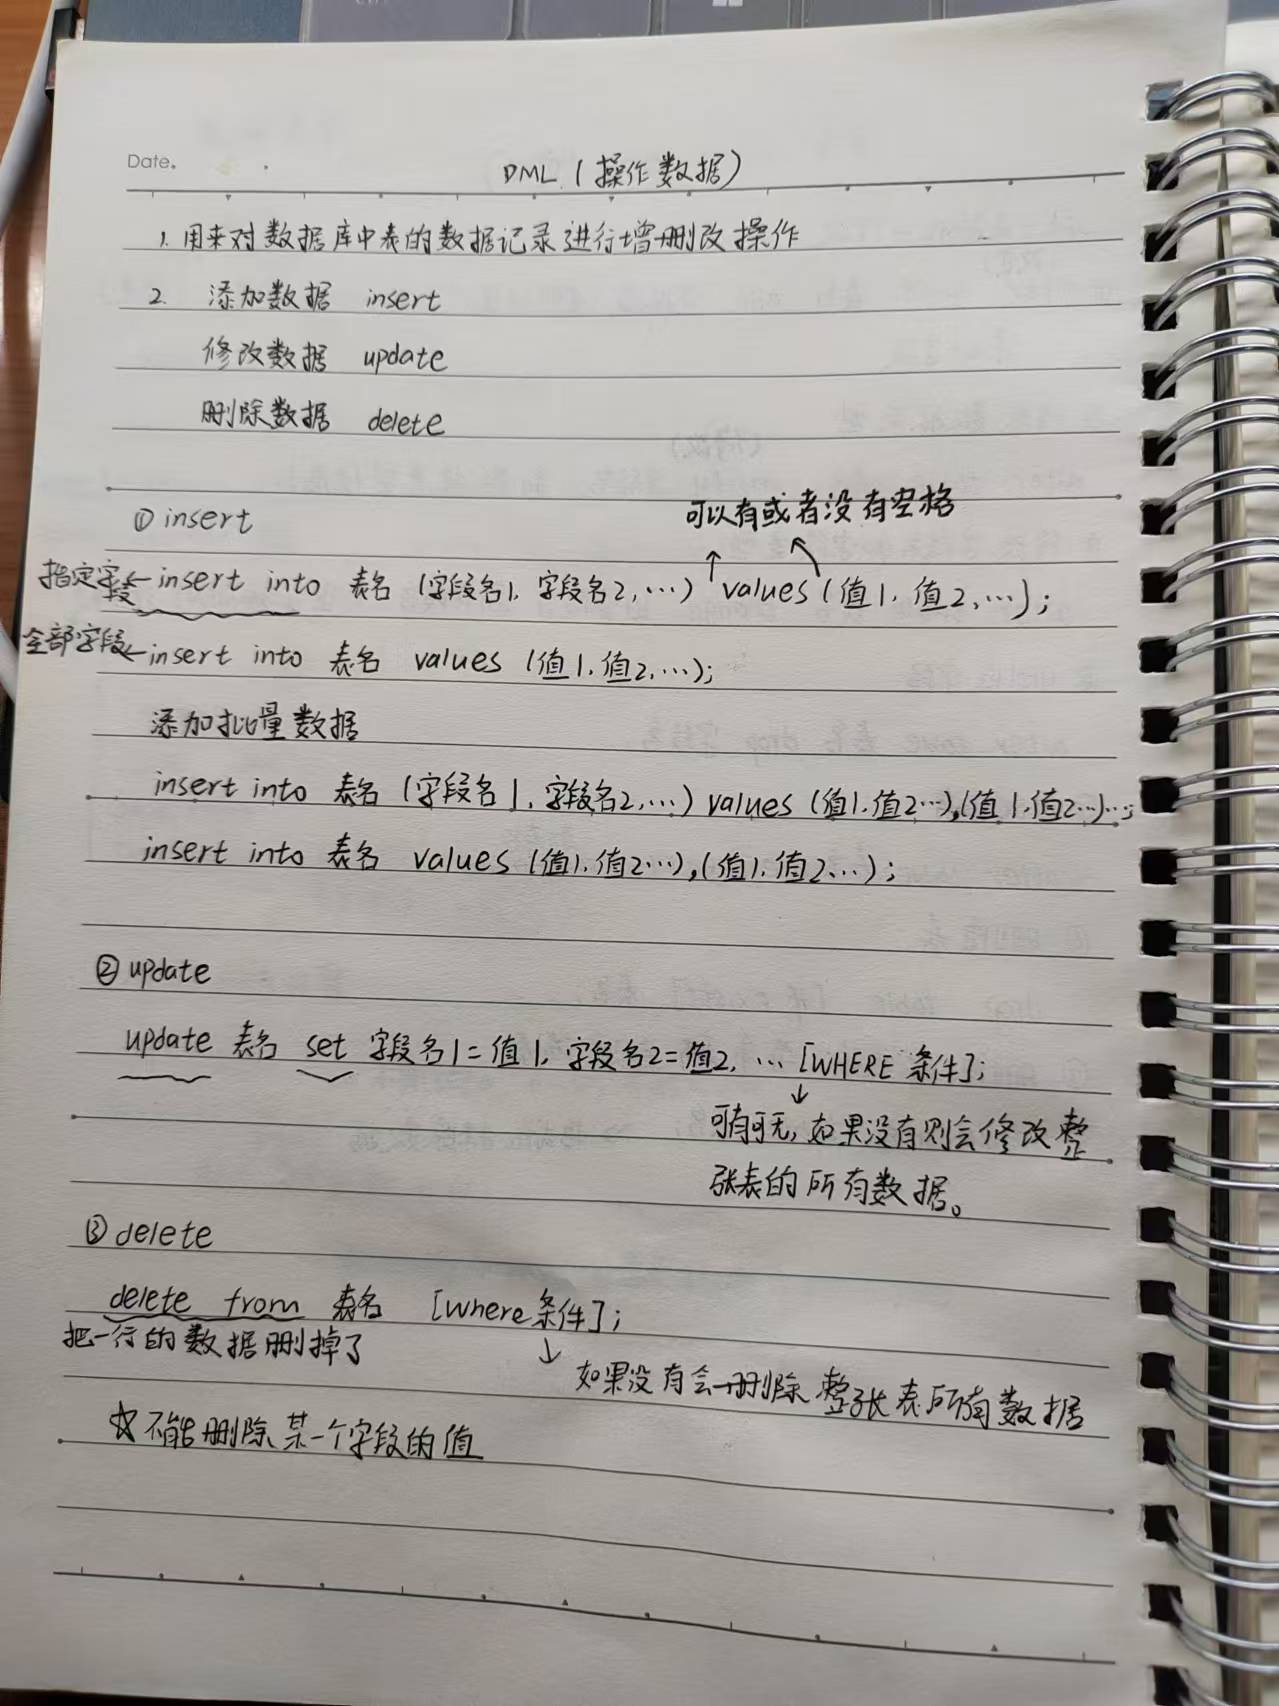 Date.
DML (操作数据)
1. 用来对数据库中表的数据记录进行增删改操作
2. 添加数据 insert
修改数据 update
删除数据 delete
① insert
可以有或者没有空格
指定字段 ← insert into 表名 (字段名1, 字段名2, …) values (值1, 值2, …);
全部字段 ← insert into 表名 values (值1, 值2, …);
添加批量数据
insert into 表名 (字段名1, 字段名2, …) values (值1, 值2…), (值1, 值2…)…;
insert into 表名 values (值1, 值2…), (值1, 值2…);
② update
update 表名 set 字段名1 = 值1, 字段名2 = 值2, … [WHERE 条件];
可有可无, 如果没有则会修改整
张表的所有数据。
③ delete
delete from 表名 [where 条件];
把一行的数据删掉了
如果没有会删除整张表所有数据
☆ 不能删除某一个字段的值